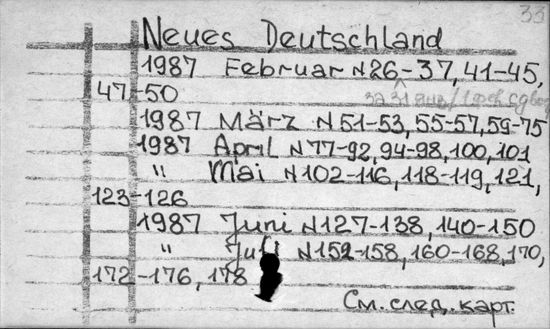 33
Neues Deutschland
1987 Februar N26-37, 41-45,
47-50
за 31 янв/1 фев
1987 März N51-53, 55-57, 59-75
1987 April N77-92, 94-98, 100, 101
" Mai N102-116, 118-119, 121,
123-126
1987 Juni N127-138, 140-150
" Juli N152-158, 160-168, 170,
172-176, 178
См. след. карт.